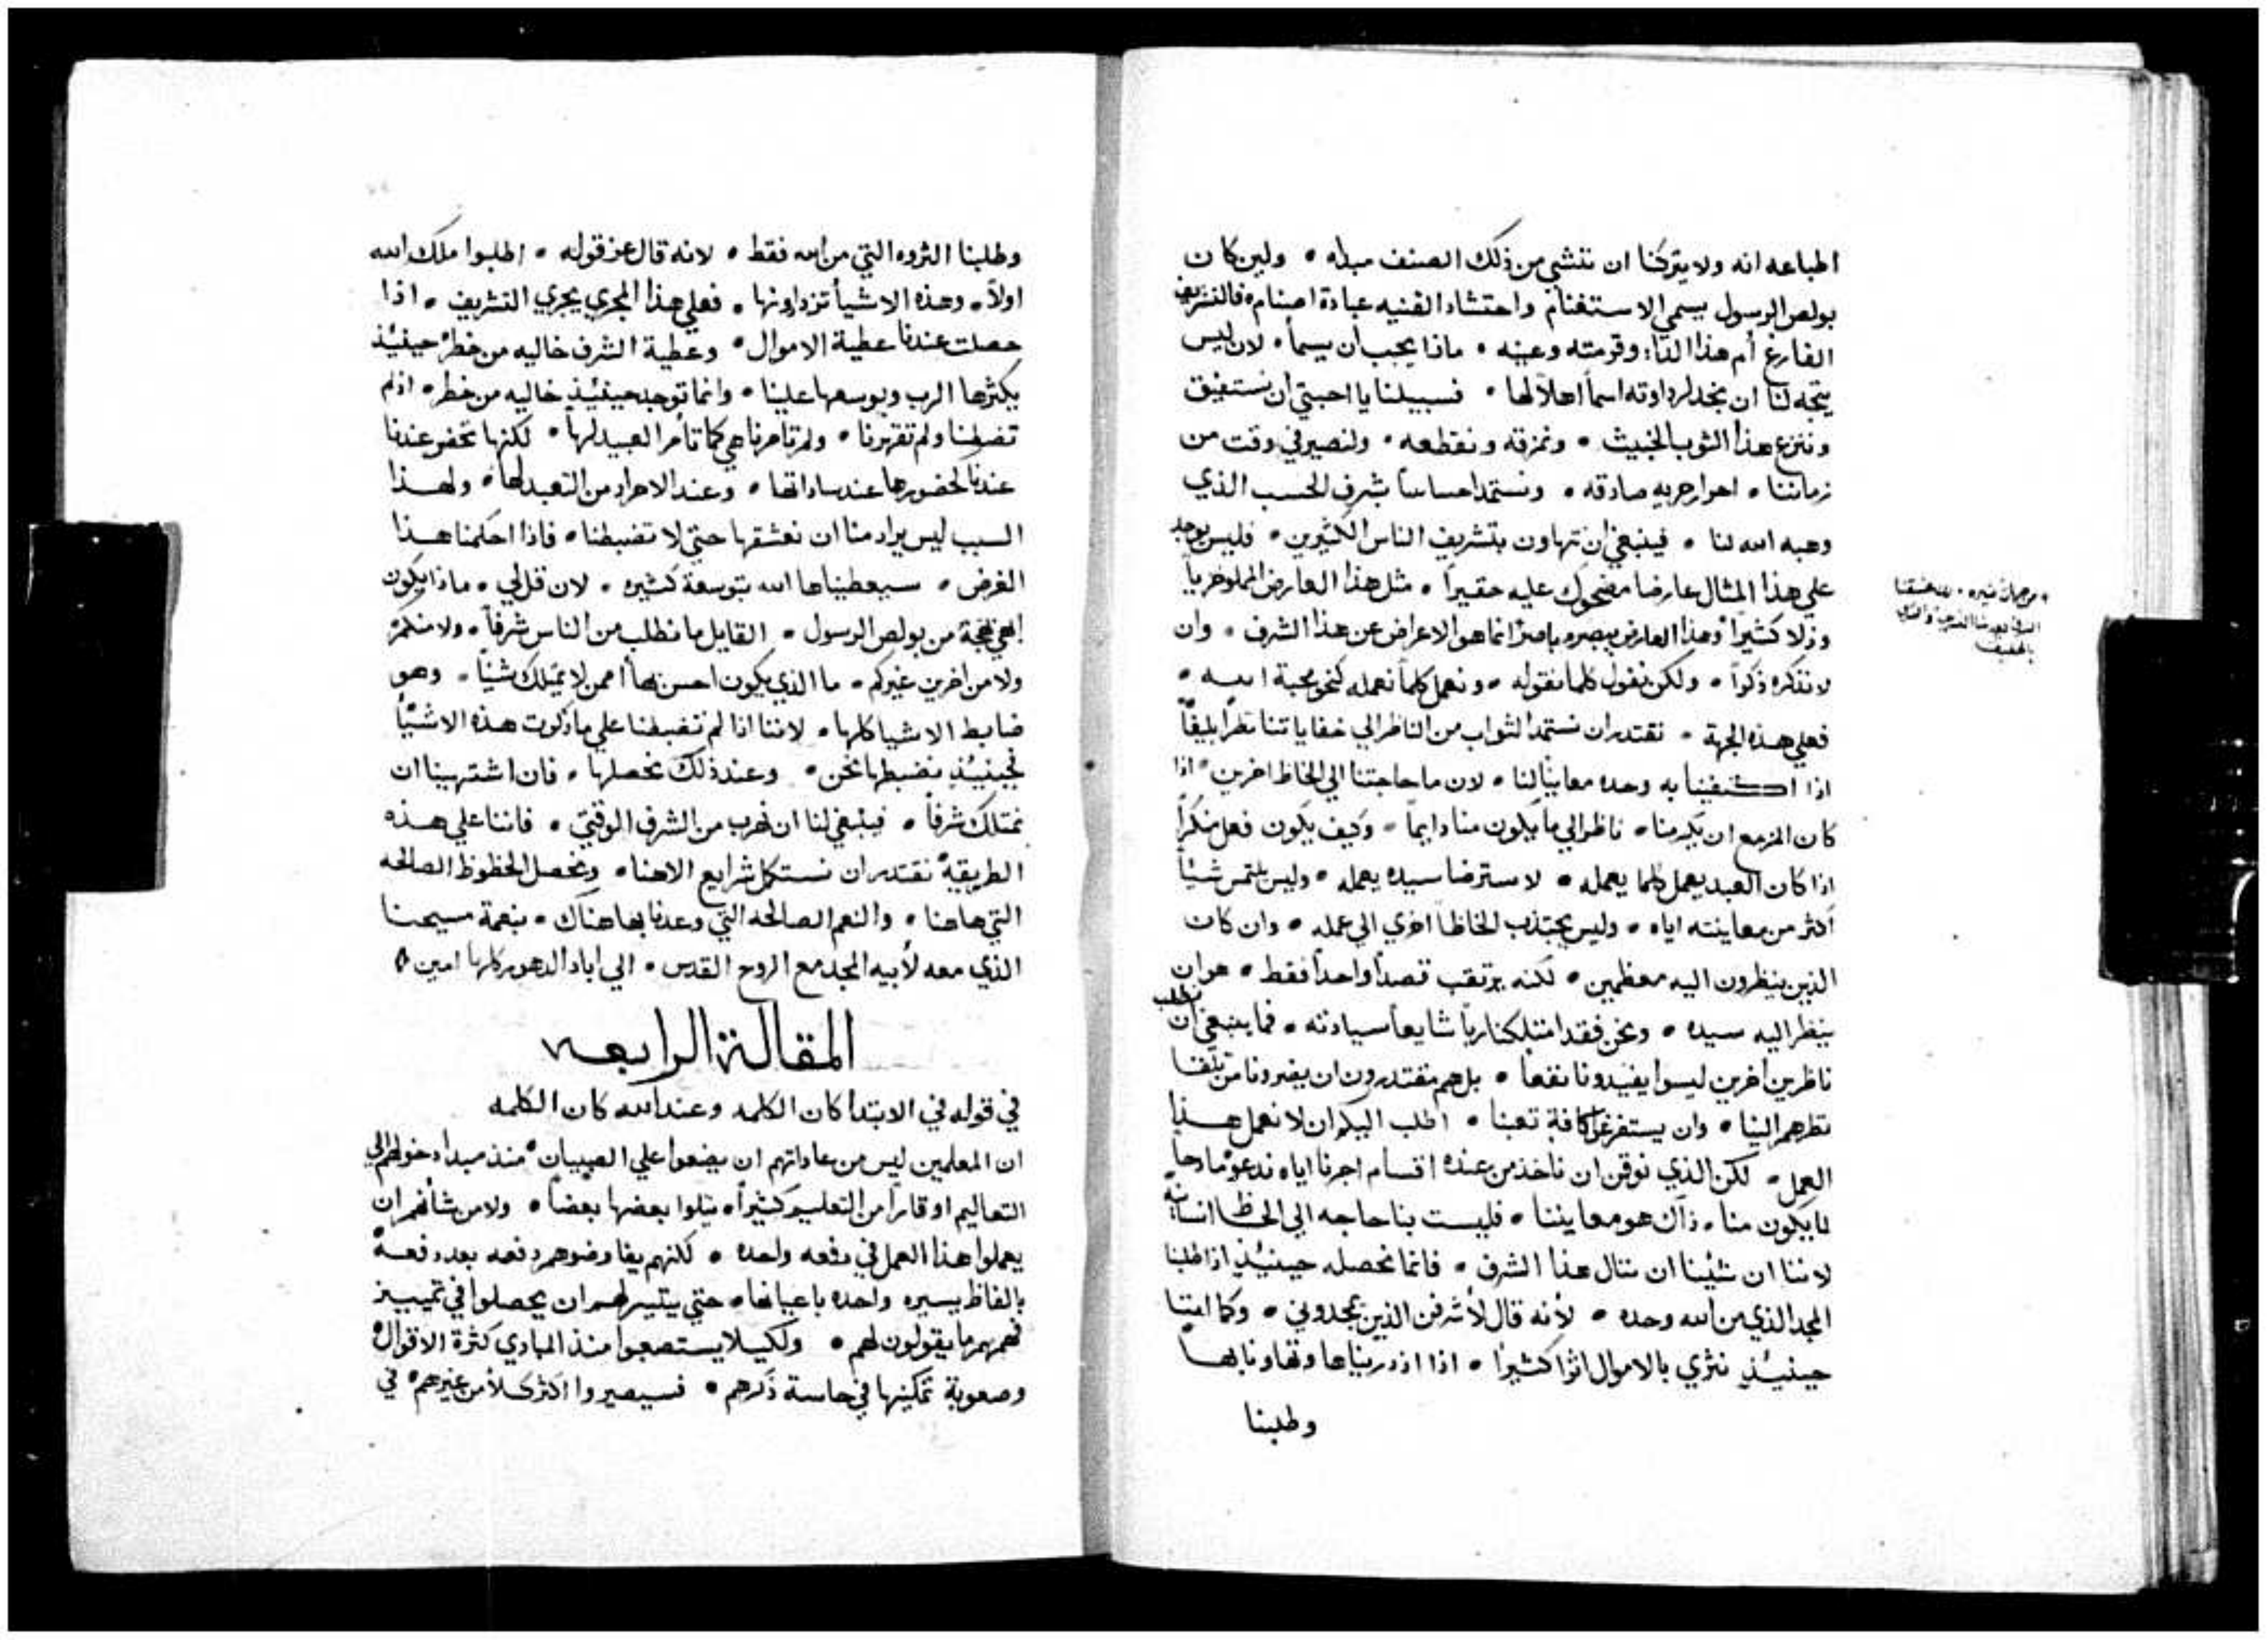 اطباعه انه ولا يتركنا ان ننثني من ذلك الصنف مبداه • ولين كان
بولص الرسول يسمي الاستغنام واحتشاد القنيه عبادة اصنام • فالتشريف
الفارغ أم هذا الداء وقرمته وعينه • ماذا يجب أن يسما • لان ليس
يتجه لنا ان نجد لرداوته اسماً اهلاً لها • فسبيلنا يا احبتي أن نستفيق
وننزع هذا الثوب الخبيث • ونمزقه ونقطعه • ولنصير في وقت من
زماننا • احرار حريه صادقه • ونستمد احساساً بشرف الحسب الذي
وهبه الله لنا • فينبغي ان نتهاون بتشريف الناس الكثيرين • فليس يوجد
علي هذا المثال عارضا مضحوك عليه حقيراً • مثل هذا العارض المملو خزياً
وذلا كثيراً وهذا العارض يبصره باصراً انما هو الاعراض عن هذا الشرف • وان
لا نذكره ذكراً • ولكن نقول كلما نقوله • ونعمل كلما نعمله كنحو محبة الله •
فعلي هذه الجهة • نقتدر ان نستمد الثواب من الناظر الي خفاياتنا نظراً بليغاً
اذا اكتفينا به وحده معايناً لنا • لان ما حاجتنا الي الحاظ اخرين • اذا
كان المزمع ان يكرمنا • ناظر الي ما يكون منا دايماً • وكيف يكون فعل منكراً
اذا كان العبد يعمل كلما يعمله • لاسترضا سيده يعمله • وليس يلتمس شيئاً
أكثر من معاينته اياه • وليس يجتذب الحاظاً اخري الي عمله • وان كان
الذين ينظرون اليه معظمين • لكنه يرتقب قصداً واحداً فقط • هو ان
ينظر اليه سيده • ونحن فقد امتلكنا رباً شايعاً سيادته • فما ينبغي أن نطلب
ناظرين اخرين ليسوا يفيدونا نفعا • بل هم مقتدرون ان يضرونا من تلقا
نظرهم الينا • وان يستفرغوا كافة تعبنا • اطلب اليكم ان لا نعمل هذا
العمل • لكن الذي نوقن ان ناخذ من عنده اقسام اجرنا اياه ندعو مادحاً
لما يكون منا • ذاك هو معايننا • فليست بنا حاجه الي الحاظ انسانيه
لاننا ان شئنا ان ننال هذا الشرف • فانما نحصله حينئذٍ اذا طلبنا
المجد الذي من الله وحده • لأنه قال لأشرفن الذين يمجدوني • وكما اننا
حينئذٍ نثري بالاموال اثرا كثيرا • اذا ازدريناها وتهاونا بها
وطلبنا
وطلبنا الثروه التي من الله فقط • لانه قال عز قوله • اطلبوا ملك الله
اولاً • وهذه الاشيأ تزدادونها • فعلي هذا المجري يجري التشريف • اذا
حصلت عندنا عطية الاموال • وعطية الشرف خاليه من خطرٍ حينئذ
يكثرها الرب ويوسعها علينا • وانما توجد حينئذٍ خاليه من خطر • اذ لم
تضبطنا ولم تقهرنا • ولم تامرنا هي كما تأمر العبيد لها • لكنها تحضر عندنا
عندنا كحضورها عند ساداتها • وعند الاحرار من التعبد لها • ولهذا
السبب ليس يراد منا ان نعشقها حتي لا تضبطنا • فاذا احكمنا هذا
الغرض • سيعطيناها الله بتوسعة كثيره • لان قل لي • ماذا يكون
ابهي بهجة من بولص الرسول • القايل ما نطلب من الناس شرفاً • ولا منكم
ولا من اخرين غيركم • ما الذي يكون احسن بهاأ ممن لا يمتلك شيئاً • وهو
ضابط الاشيا كلها • لاننا اذا لم تضبطنا علي ما ذكرت هذه الاشيأ
فحينئذٍ نضبطها نحن • وعند ذلك نحصلها • فان اشتهينا ان
نمتلك شرفاً • فينبغي لنا ان نهرب من الشرف الوقتي • فاننا علي هذه
الطريقة نقتدر ان نستكمل شرايع الاهنا • ونحصل الحظوظ الصالحه
التي هاهنا • والنعم الصالحه التي وعدنا بها هناك • بنعمة مسيحنا
الذي معه لأبيه المجد مع الروح القدس • الي اباد الدهور كلها امين
المقالة الرابعه
في قوله في الابتدا كان الكلمه وعند الله كان الكلمه
ان المعلمين ليس من عاداتهم ان يضعوا علي الصبيان • منذ مبدأ دخولهم الي
التعاليم اوقارا من التعليم كثيراً • يتلوا بعضها بعضاً • ولا من شأنهم ان
يعملوا هذا العمل في دفعه واحده • لكنهم يفاوضوهم دفعه بعد دفعة
بالفاظ يسيره واحده باعيانها • حتي يتيسر لهم ان يحصلوا في تمييز
فهمهم ما يقولون لهم • ولكيلا يستصعبوا منذ المبادي كثرة الاقوال
وصعوبة تمكينها في حاسة ذكرهم • فسيصيروا اكثر كسلاً من غيرهم • في